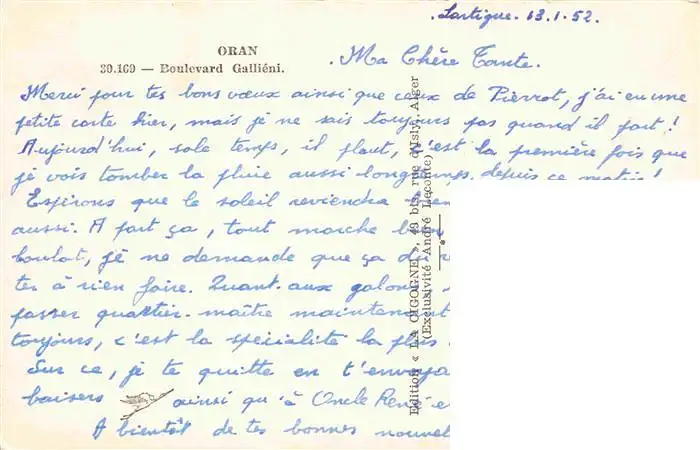 Lartigue. 13.1.52.
ORAN
30.169 — Boulevard Galliéni.
Ma Chère Tante.
Merci pour tes bons vœux ainsi que ceux de Pierrot, j'ai eu une
petite carte hier, mais je ne sais toujours pas quand il part!
Aujourd'hui, sale temps, il pleut, c'est la première fois que
je vois tomber la pluie aussi longtemps, depuis ce matin!
Espérons que le soleil reviendra
aussi. A part ça, tout marche
boulot, je ne demande que ça
à rien faire. Quant aux galons
passer quartier-maître maintenant
toujours, c'est la spécialité la plus
Sur ce, je te quitte en t'envoya
baisers ainsi qu'à Oncle René et
A bientôt de tes bonnes nouvel
Edition « LA CIGOGNE », 43 bis, rue d'Isly, Alger
(Exclusivité André Leconte)